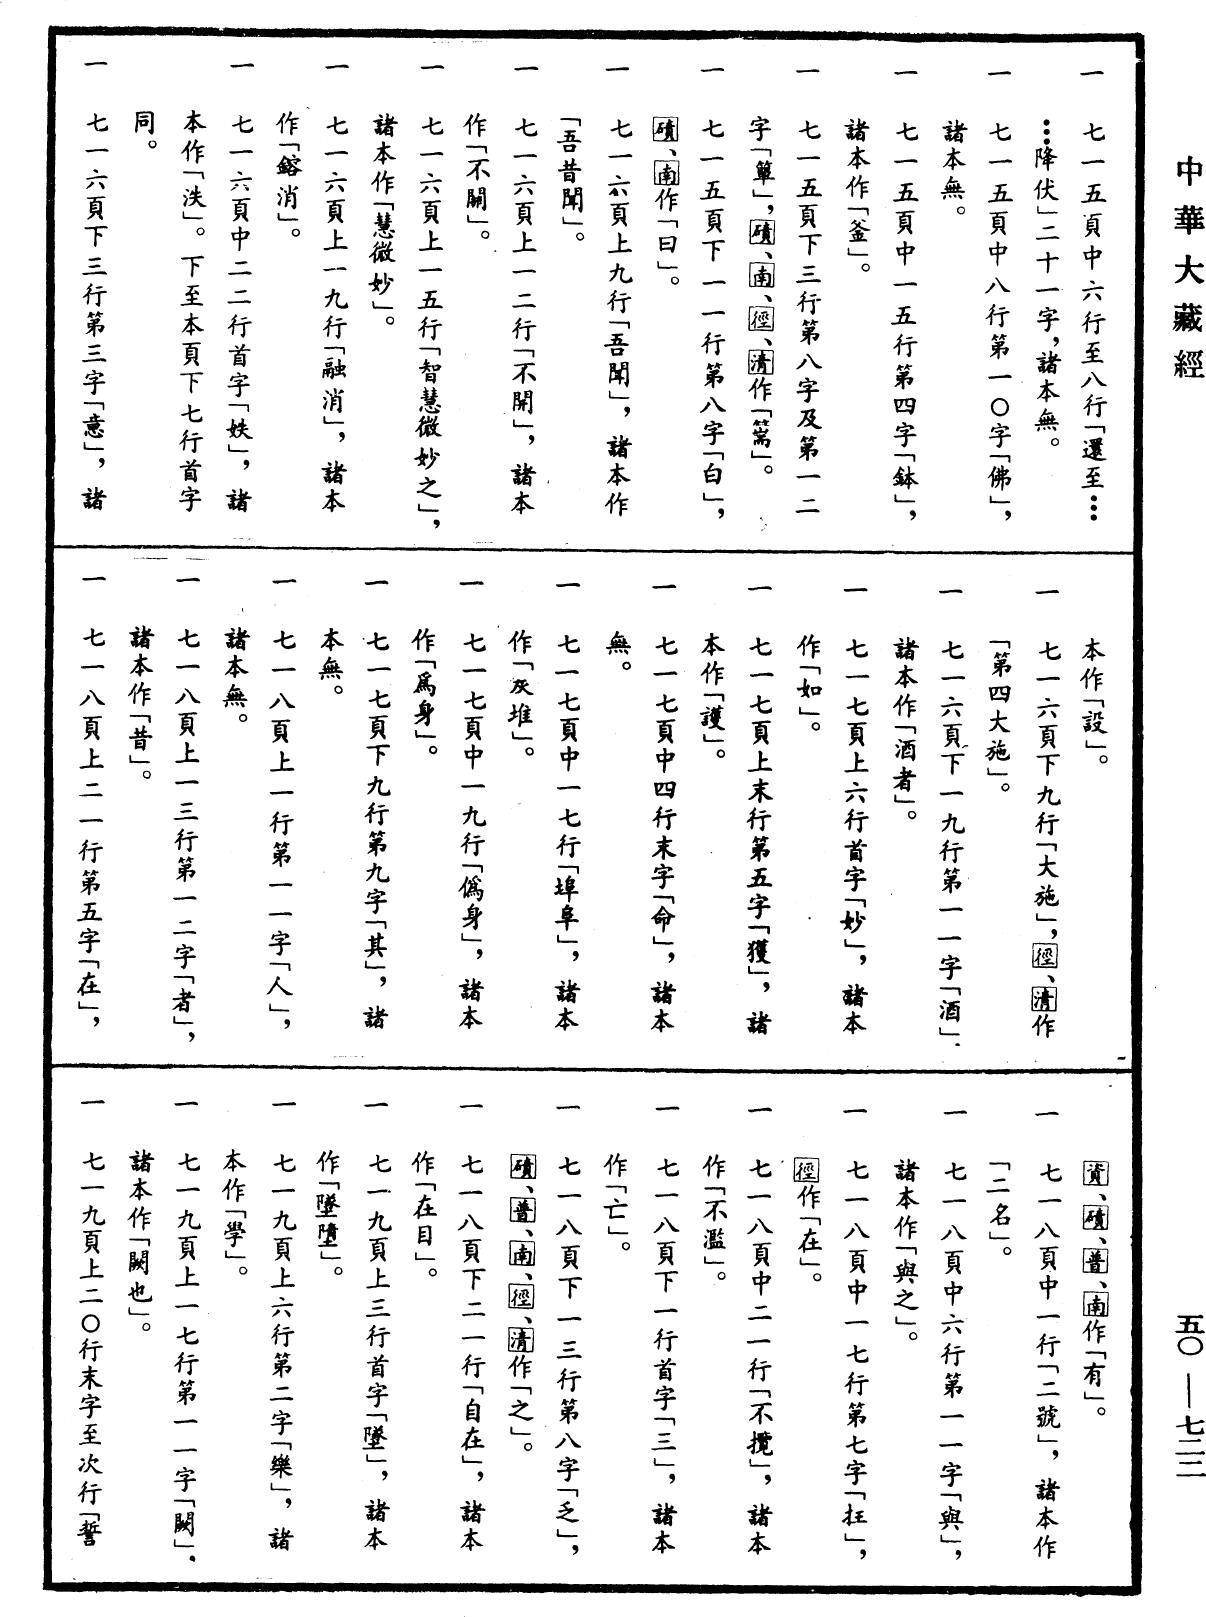 中華大藏經
五〇—七二二
一　七一五頁中六行至八行「還至…
…降伏」二十一字，諸本無。
一　七一五頁中八行第一〇字「佛」，
諸本無。
一　七一五頁中一五行第四字「鉢」，
諸本作「釜」。
一　七一五頁下三行第八字及第一二
字「簞」，磧、南、徑、清作「篙」。
一　七一五頁下一一行第八字「白」，
磧、南作「曰」。
一　七一六頁上九行「吾聞」，諸本作
「吾昔聞」。
一　七一六頁上一二行「不開」，諸本
作「不關」。
一　七一六頁上一五行「智慧微妙之」，
諸本作「慧微妙」。
一　七一六頁上一九行「融消」，諸本
作「鎔消」。
一　七一六頁中二二行首字「妷」，諸
本作「泆」。下至本頁下七行首字
同。
一　七一六頁下三行第三字「意」，諸
本作「設」。
一　七一六頁下九行「大施」，徑、清作
「第四大施」。
一　七一六頁下一九行第一一字「酒」，
諸本作「酒者」。
一　七一七頁上六行首字「妙」，諸本
作「如」。
一　七一七頁上末行第五字「獲」，諸
本作「護」。
一　七一七頁中四行末字「命」，諸本
無。
一　七一七頁中一七行「埠阜」，諸本
作「灰堆」。
一　七一七頁中一九行「僞身」，諸本
作「爲身」。
一　七一七頁下九行第九字「其」，諸
本無。
一　七一八頁上一行第一一字「人」，
諸本無。
一　七一八頁上一三行第一二字「者」，
諸本作「昔」。
一　七一八頁上二一行第五字「在」，
資、磧、普、南作「有」。
一　七一八頁中一行「二號」，諸本作
「二名」。
一　七一八頁中六行第一一字「與」，
諸本作「與之」。
一　七一八頁中一七行第七字「抂」，
徑作「在」。
一　七一八頁中二一行「不攬」，諸本
作「不濫」。
一　七一八頁下一行首字「三」，諸本
作「亡」。
一　七一八頁下一三行第八字「乏」，
磧、普、南、徑、清作「之」。
一　七一八頁下二一行「自在」，諸本
作「在目」。
一　七一九頁上三行首字「墜」，諸本
作「墜墮」。
一　七一九頁上六行第二字「樂」，諸
本作「學」。
一　七一九頁上一七行第一一字「闕」，
諸本作「闕也」。
一　七一九頁上二〇行末字至次行「誓